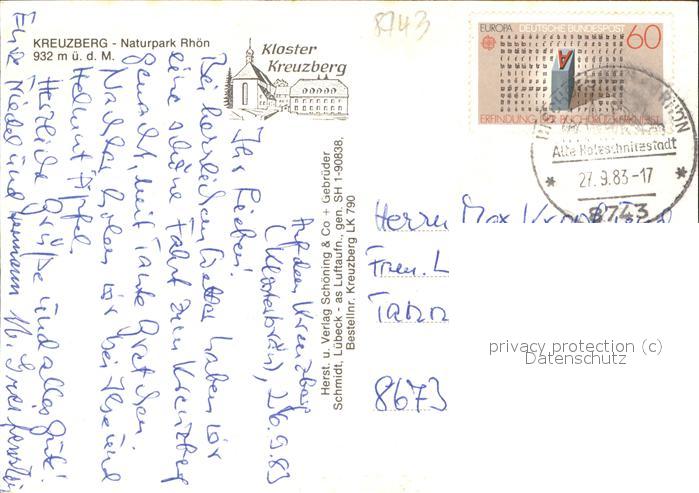 KREUZBERG - Naturpark Rhön
932 m ü. d. M.
Kloster
Kreuzberg
8743
EUROPA DEUTSCHE BUNDESPOST 60
ERFINDUNG DER BUCHDRUCKERKUNST
Alte Holzschnitzstadt
27.9.83-17
8743
Herst. u. Verlag Schöning & Co + Gebrüder
Schmidt, Lübeck - as Luftaufn., gen. SH 1-90838,
Bestellnr. Kreuzberg LK 790
Auf dem Kreuzberg
(Klosterbräu), 26.9.83
Ihr Lieben!
Bei herrlichem Wetter haben wir
eine schöne Fahrt zum Kreuzberg
gemacht, mit Tante Gretchen.
wir bei und
Helmut Äpfel.
Herzliche Grüße und alles Gute!
Eure und Hermann
Herrn Max
Frau L
Tann
8673
privacy protection (c)
Datenschutz